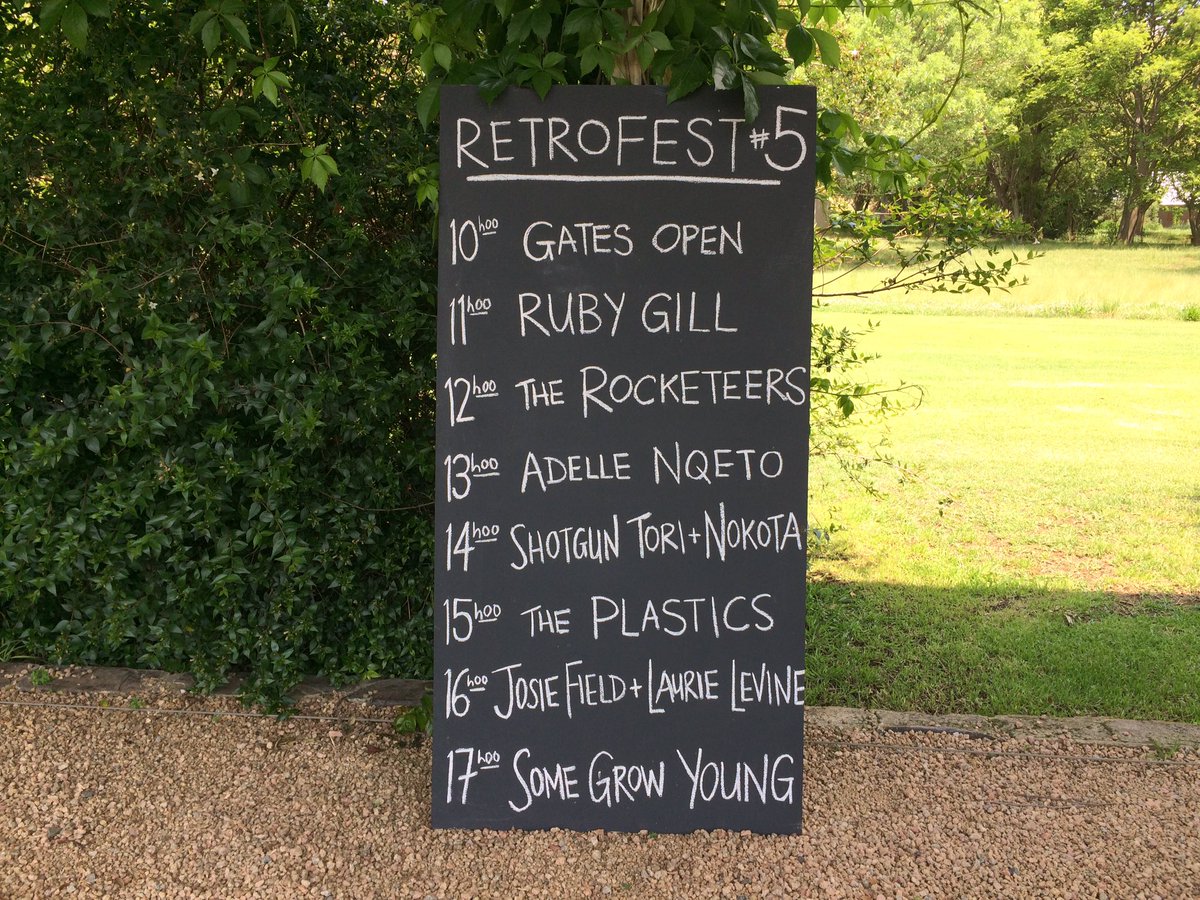 RETROFEST #5
10h00 GATES OPEN
11h00 RUBY GILL
12h00 THE ROCKETEERS
13h00 ADELLE NQETO
14h00 SHOTGUN TORI + NOKOTA
15h00 THE PLASTICS
16h00 JOSIE FIELD + LAURIE LEVINE
17h00 SOME GROW YOUNG